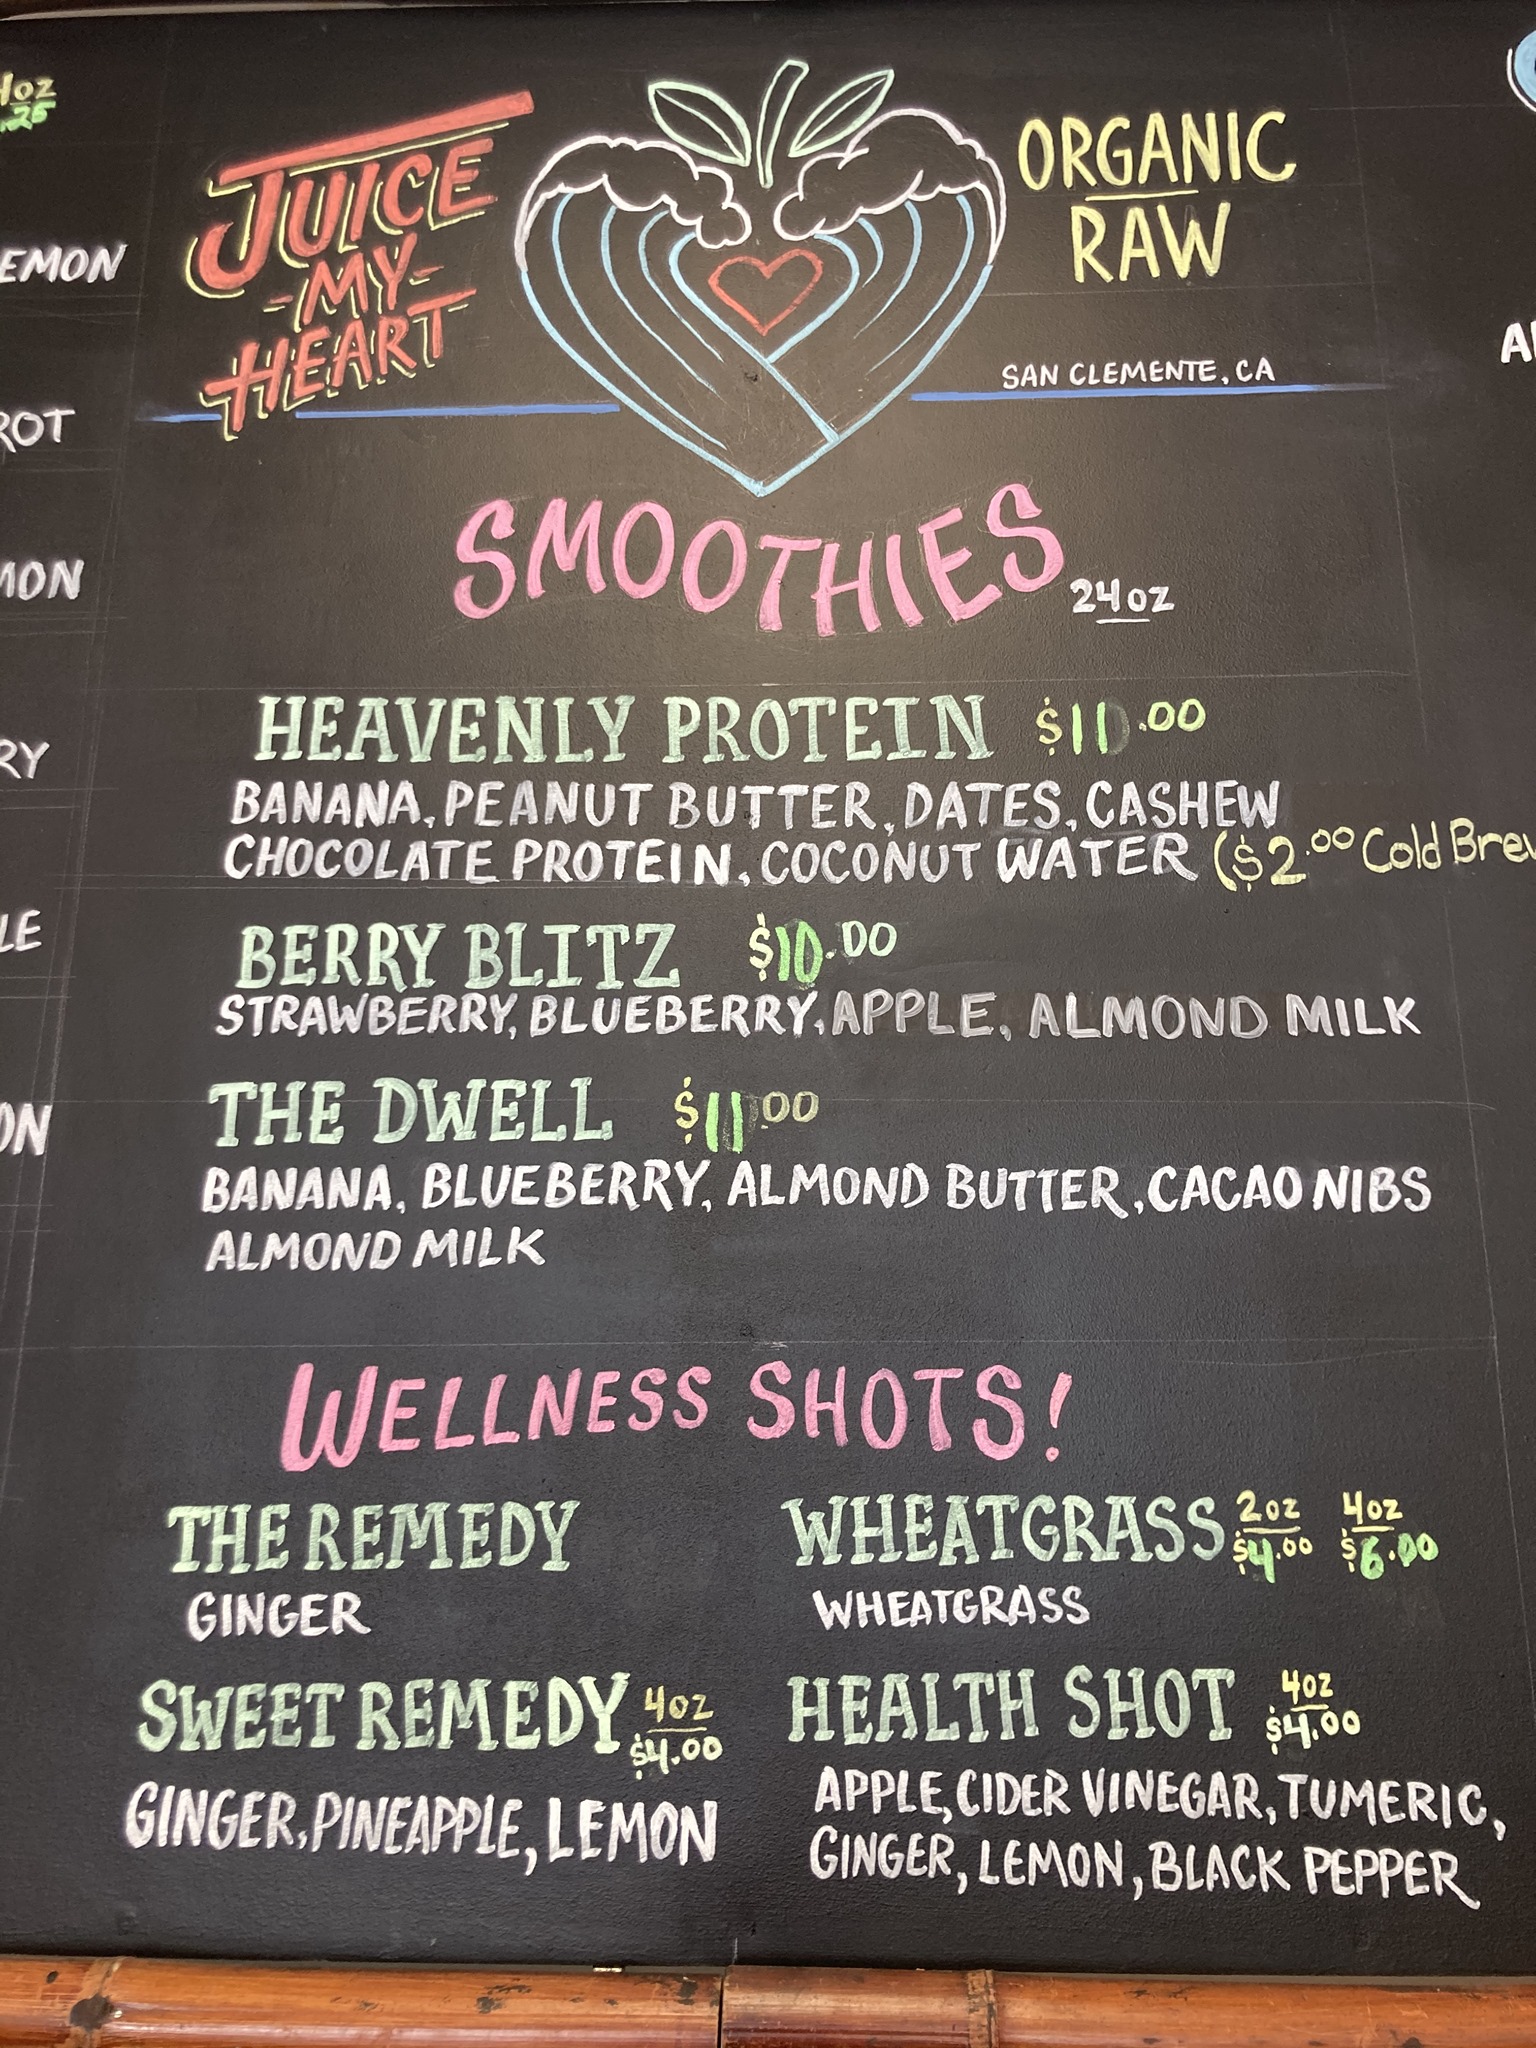 4oz
.25
EMON
ROT
MON
RY
LE
ON
JUICE
-MY-
HEART
ORGANIC
RAW
SAN CLEMENTE, CA
SMOOTHIES 24oz
HEAVENLY PROTEIN $11.00
BANANA, PEANUT BUTTER, DATES, CASHEW
CHOCOLATE PROTEIN, COCONUT WATER ($2.00 Cold Brew
BERRY BLITZ $10.00
STRAWBERRY, BLUEBERRY, APPLE, ALMOND MILK
THE DWELL $11.00
BANANA, BLUEBERRY, ALMOND BUTTER, CACAO NIBS
ALMOND MILK
WELLNESS SHOTS!
THE REMEDY
GINGER
WHEATGRASS 2oz $4.00 4oz $6.00
WHEATGRASS
SWEET REMEDY 4oz $4.00
GINGER, PINEAPPLE, LEMON
HEALTH SHOT 4oz $4.00
APPLE, CIDER VINEGAR, TUMERIC,
GINGER, LEMON, BLACK PEPPER